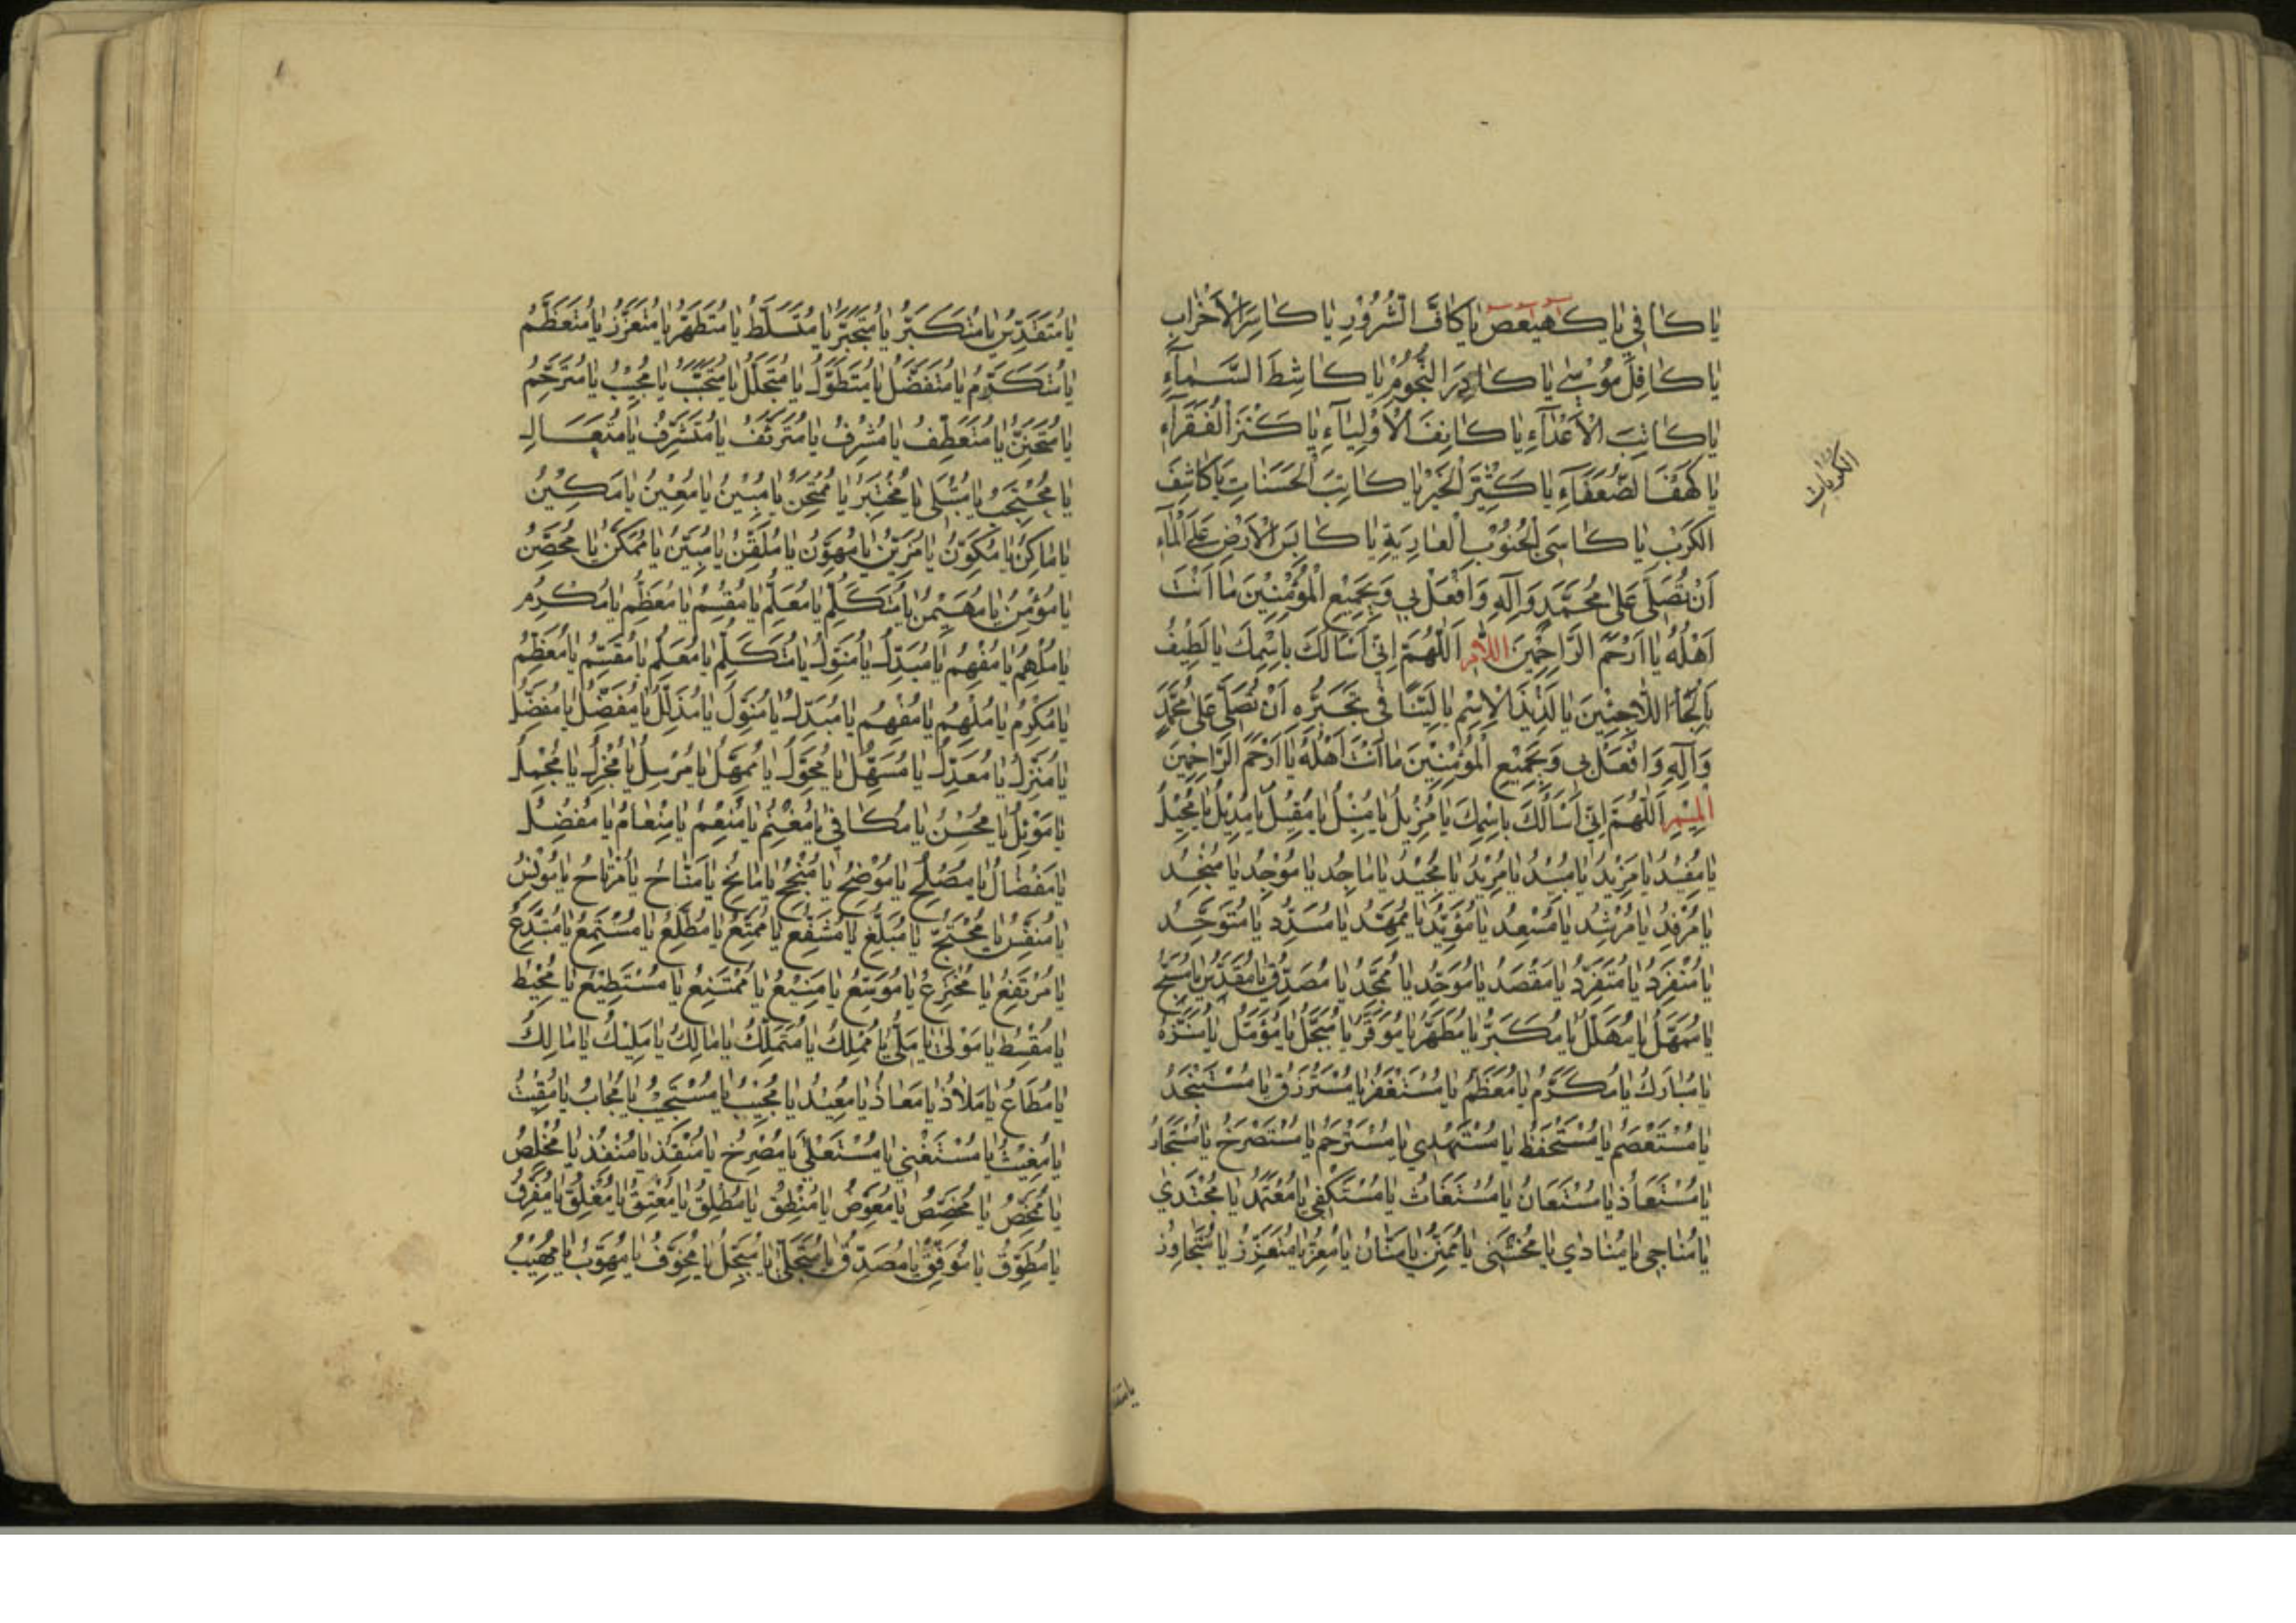 يَا كَافِي يَا كهيعص يَا كَافَّ الشُّرُورِ يَا كَاسِرَ الْأَحْزَابِ
يَا كَافِلَ مُوسٰى يَا كَادِرَ النُّجُومِ يَا كَاشِطَ السَّمَآءِ
يَا كَابِتَ الْأَعْدَآءِ يَا كَانِفَ الْأَوْلِيَآءِ يَا كَنْزَ الْفُقَرَآءِ
يَا كَهْفَ الضُّعَفَآءِ يَا كَثِيرَ الْخَيْرِ يَا كَاتِبَ الْحَسَنَاتِ يَا كَاشِفَ
الْكُرُبَاتِ
الكَرْبِ يَا كَاسِيَ الْجُنُوبِ الْعَارِيَةِ يَا كَابِسَ الْأَرْضِ عَلَى الْمَآءِ
أَنْ تُصَلِّيَ عَلَى مُحَمَّدٍ وَآلِهِ وَافْعَلْ بِي وَبِجَمِيعِ الْمُؤْمِنِينَ مَا أَنْتَ
أَهْلُهُ يَا أَرْحَمَ الرَّاحِمِينَ اللام اَللّٰهُمَّ إِنِّي أَسْأَلُكَ بِاسْمِكَ يَا لَطِيفُ
يَا لَجَأَ اللَّاجِئِينَ يَا لَذِيذَ الْاِسْمِ يَا لَيِّنًا فِي تَجَبُّرِهِ أَنْ تُصَلِّيَ عَلَى مُحَمَّدٍ
وَآلِهِ وَافْعَلْ بِي وَبِجَمِيعِ الْمُؤْمِنِينَ مَا أَنْتَ أَهْلُهُ يَا أَرْحَمَ الرَّاحِمِينَ
الميم اَللّٰهُمَّ إِنِّي أَسْأَلُكَ بِاسْمِكَ يَا مُزِيلُ يَا مُنِيلُ يَا مُقِيلُ يَا مُدِيلُ يَا مُحِيلُ
يَا مُفِيدُ يَا مَزِيدُ يَا مُبِيدُ يَا مُرِيدُ يَا مَجِيدُ يَا مَاجِدُ يَا مُوجِدُ يَا مُنْجِدُ
يَا مُرْفِدُ يَا مُرْشِدُ يَا مُسْعِدُ يَا مُؤَيِّدُ يَا مُمَهِّدُ يَا مُسَدِّدُ يَا مُتَوَحِّدُ
يَا مُنْفَرِدُ يَا مُتَفَرِّدُ يَا مَقْصَدُ يَا مُوَحَّدُ يَا مُمَجَّدُ يَا مُصَدِّقُ يَا مُقَدَّسُ يَا مُسَبَّحُ
يَا مُهَلَّلُ يَا مُكَبَّرُ يَا مُطَهَّرُ يَا مُوَقَّرُ يَا مُبَجَّلُ يَا مُؤَمَّلُ يَا مُنَزَّهُ
يَا مُبَارَكُ يَا مُكَرَّمُ يَا مُعَظَّمُ يَا مُسْتَغْفَرُ يَا مُسْتَرْزَقُ يَا مُسْتَنْجَدُ
يَا مُسْتَعْصَمُ يَا مُسْتَحْفَظُ يَا مُسْتَهْدٰي يَا مُسْتَرْحَمُ يَا مُسْتَصْرَخُ يَا مُسْتَجَارُ
يَا مُسْتَعَاذُ يَا مُسْتَعَانُ يَا مُسْتَغَاثُ يَا مُسْتَكْفٰي يَا مُعْتَمَدُ يَا مُجْتَدٰي
يَا مُنَاجٰي يَا مُنَادٰي يَا مُخْتَشٰي يَا مَنَّانُ يَا مُعِزُّ يَا مُتَعَزِّزُ يَا مُتَجَاوِزُ
يَا مُتَقَدِّسُ يَا مُتَكَبِّرُ يَا مُتَجَبِّرُ يَا مُتَسَلِّطُ يَا مُتَطَهِّرُ يَا مُتَعَزِّزُ يَا مُتَعَظِّمُ
يَا مُتَكَرِّمُ يَا مُتَفَضِّلُ يَا مُتَطَوِّلُ يَا مُتَجَلِّلُ يَا مُتَحَبِّبُ يَا مُجِيبُ يَا مُتَرَحِّمُ
يَا مُتَحَنِّنُ يَا مُتَعَطِّفُ يَا مُشْرِفُ يَا مُتَرَئِّفُ يَا مُتَشَرِّفُ يَا مُتَعَالِ
يَا مُحْتَجِبُ يَا مُبْتَلِي يَا مُخْتَبِرُ يَا مُمْتَحِنُ يَا مُبِينُ يَا مُعِينُ يَا مَكِينُ
يَا مَاكِنُ يَا مُكَوِّنُ يَا مُزَيِّنُ يَا مُهَوِّنُ يَا مُلَقِّنُ يَا مُبَيِّنُ يَا مُمَكِّنُ يَا مُحَصِّنُ
يَا مُؤْمِنُ يَا مُهَيْمِنُ يَا مُتَكَلِّمُ يَا مُعَلِّمُ يَا مُقْسِمُ يَا مُعَظِّمُ يَا مُكْرِمُ
يَا مُلْهِمُ يَا مُفْهِمُ يَا مُبَدِّلُ يَا مُنَوِّلُ يَا مُتَكَلِّمُ يَا مُعَلِّمُ يَا مُقَسِّمُ يَا مُعَظِّمُ
يَا مُكْرِمُ يَا مُلْهِمُ يَا مُفْهِمُ يَا مُبَدِّلُ يَا مُنَوِّلُ يَا مُذَلِّلُ يَا مُفَصِّلُ يَا مُفَضِّلُ
يَا مُنَزِّلُ يَا مُعَدِّلُ يَا مُسَهِّلُ يَا مُحَوِّلُ يَا مُمَهِّلُ يَا مُرْسِلُ يَا مُجْزِلُ يَا مُجْمِلُ
يَا مَوْئِلُ يَا مُحْسِنُ يَا مُكَافِي يَا مُنْعِمُ يَا مِنْعَامُ يَا مُفْضِلُ
يَا مِفْضَالُ يَا مُصْلِحُ يَا مُوضِحُ يَا مُنْجِحُ يَا مَانِحُ يَا مَنَّاحُ يَا مُرْتَاحُ يَا مُونِسُ
يَا مُنَفِّسُ يَا مُحْتَجُّ يَا مُبَلِّغُ يَا مُشَفِّعُ يَا مُمَتِّعُ يَا مُطَّلِعُ يَا مُسْتَمِعُ يَا مُبْتَدِعُ
يَا مُرْتَفِعُ يَا مُخْتَرِعُ يَا مُوَسِّعُ يَا مَنِيعُ يَا مُمْتَنِعُ يَا مُسْتَطِيعُ يَا مُحِيطُ
يَا مُقْسِطُ يَا مَوْلٰى يَا مَلِيُّ يَا مُمَلِّكُ يَا مُتَمَلِّكُ يَا مَالِكُ يَا مَلِيكُ يَا مَالِكُ
يَا مُطَاعُ يَا مَلَاذُ يَا مَعَاذُ يَا مُعِيذُ يَا مُجِيبُ يَا مُسْتَجِيبُ يَا مُجَابُ يَا مُقِيتُ
يَا مُغِيثُ يَا مُسْتَغْنِي يَا مُسْتَعْلِي يَا مُصْرِخُ يَا مُنْقِذُ يَا مُنْفِذُ يَا مُخَلِّصُ
يَا مُمَحِّصُ يَا مُخَصِّصُ يَا مُعَوِّضُ يَا مُنْطِقُ يَا مُطْلِقُ يَا مُعْتِقُ يَا مُغْلِقُ يَا مُفَرِّقُ
يَا مُطَوِّقُ يَا مُوَفِّقُ يَا مُصَدِّقُ يَا مُتَجَلِّي يَا مُبَجَّلُ يَا مُخَوِّفُ يَا مُهَوِّبُ يَا مُهِيبُ